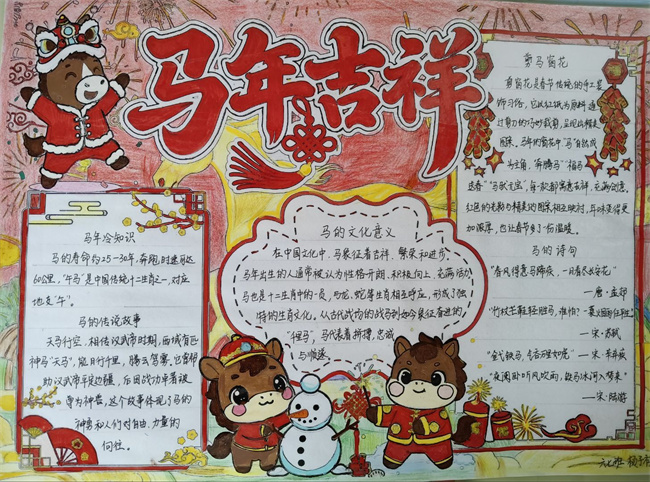 马年吉祥
马年冷知识
马的寿命约25-30年,奔跑时速可达
60公里,"午马"是中国传统十二生肖之一,对应
地支"午"。
马的传说故事
天马行空,相传汉武帝时期,西域有匹
神马"天马",能日行千里,腾云驾雾,它曾帮
助汉武帝平定边疆,后因战功卓著被
尊为神兽,这个故事体现了马的
神勇和人们对自由、力量的
向往。
马的文化意义
在中国文化中,马象征着吉祥、繁荣和进步
马年出生的人通常被认为性格开朗、积极向上、充满活力
马也是十二生肖中的一员,与龙、蛇等生肖相互呼应,形成了独
特的生肖文化。从古代战场的战马到如今象征奋进的
"千里马",马代表着拼搏、忠诚
与顺遂。
剪马窗花
剪窗花是春节传统的手工装
饰习俗,它以红纸为原料,通
过剪刀的巧妙裁剪,呈现出精美
图案,马年的窗花中,"马"自然成
为主角,"奔腾马""福马
送春""马跃天空",每一款都寓意吉祥,充满创意,
红色的老势与精美的图案相互映衬,年味变得更
加浓厚,也让春节多了一份温暖。
马的诗句
"春风得意马蹄疾,一日看尽长安花"
—唐·孟郊
"竹杖芒鞋轻胜马,谁怕?一蓑烟雨任平生"
—宋·苏轼
"金戈铁马,气吞万里如虎" —宋·辛弃疾
"夜阑卧听风吹雨,铁马冰河入梦来"
—宋·陆游